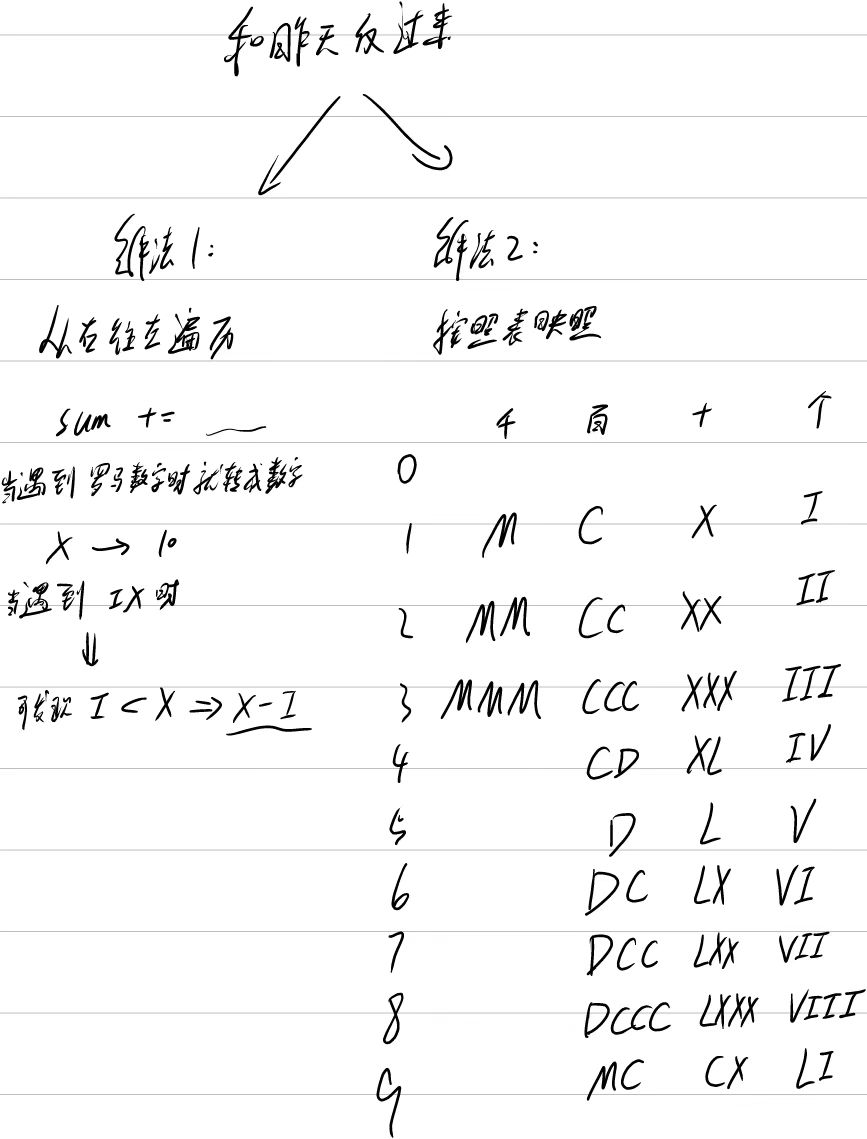 和昨天反过来
解法1:
从右往左遍历
sum += __
当遇到罗马数字时就转成数字
X → 10
当遇到 IX 时
⇓
可发现 I < X ⇒ X-I
解法2:
按照表映照
千 百 十 个
0
1 M C X I
2 MM CC XX II
3 MMM CCC XXX III
4 CD XL IV
5 D L V
6 DC LX VI
7 DCC LXX VII
8 DCCC LXXX VIII
9 MC CX LI